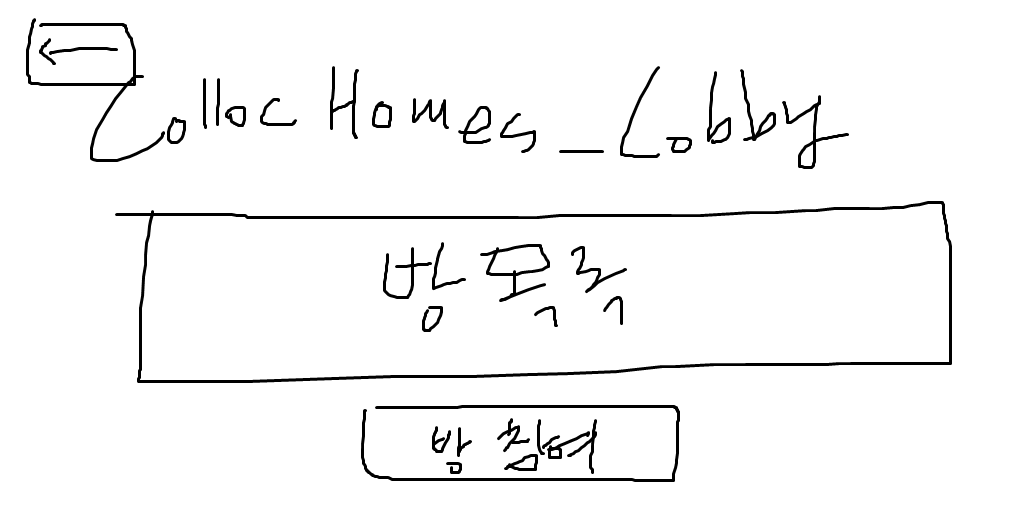 Colloc Homes_Lobby
방 목록
방 참여